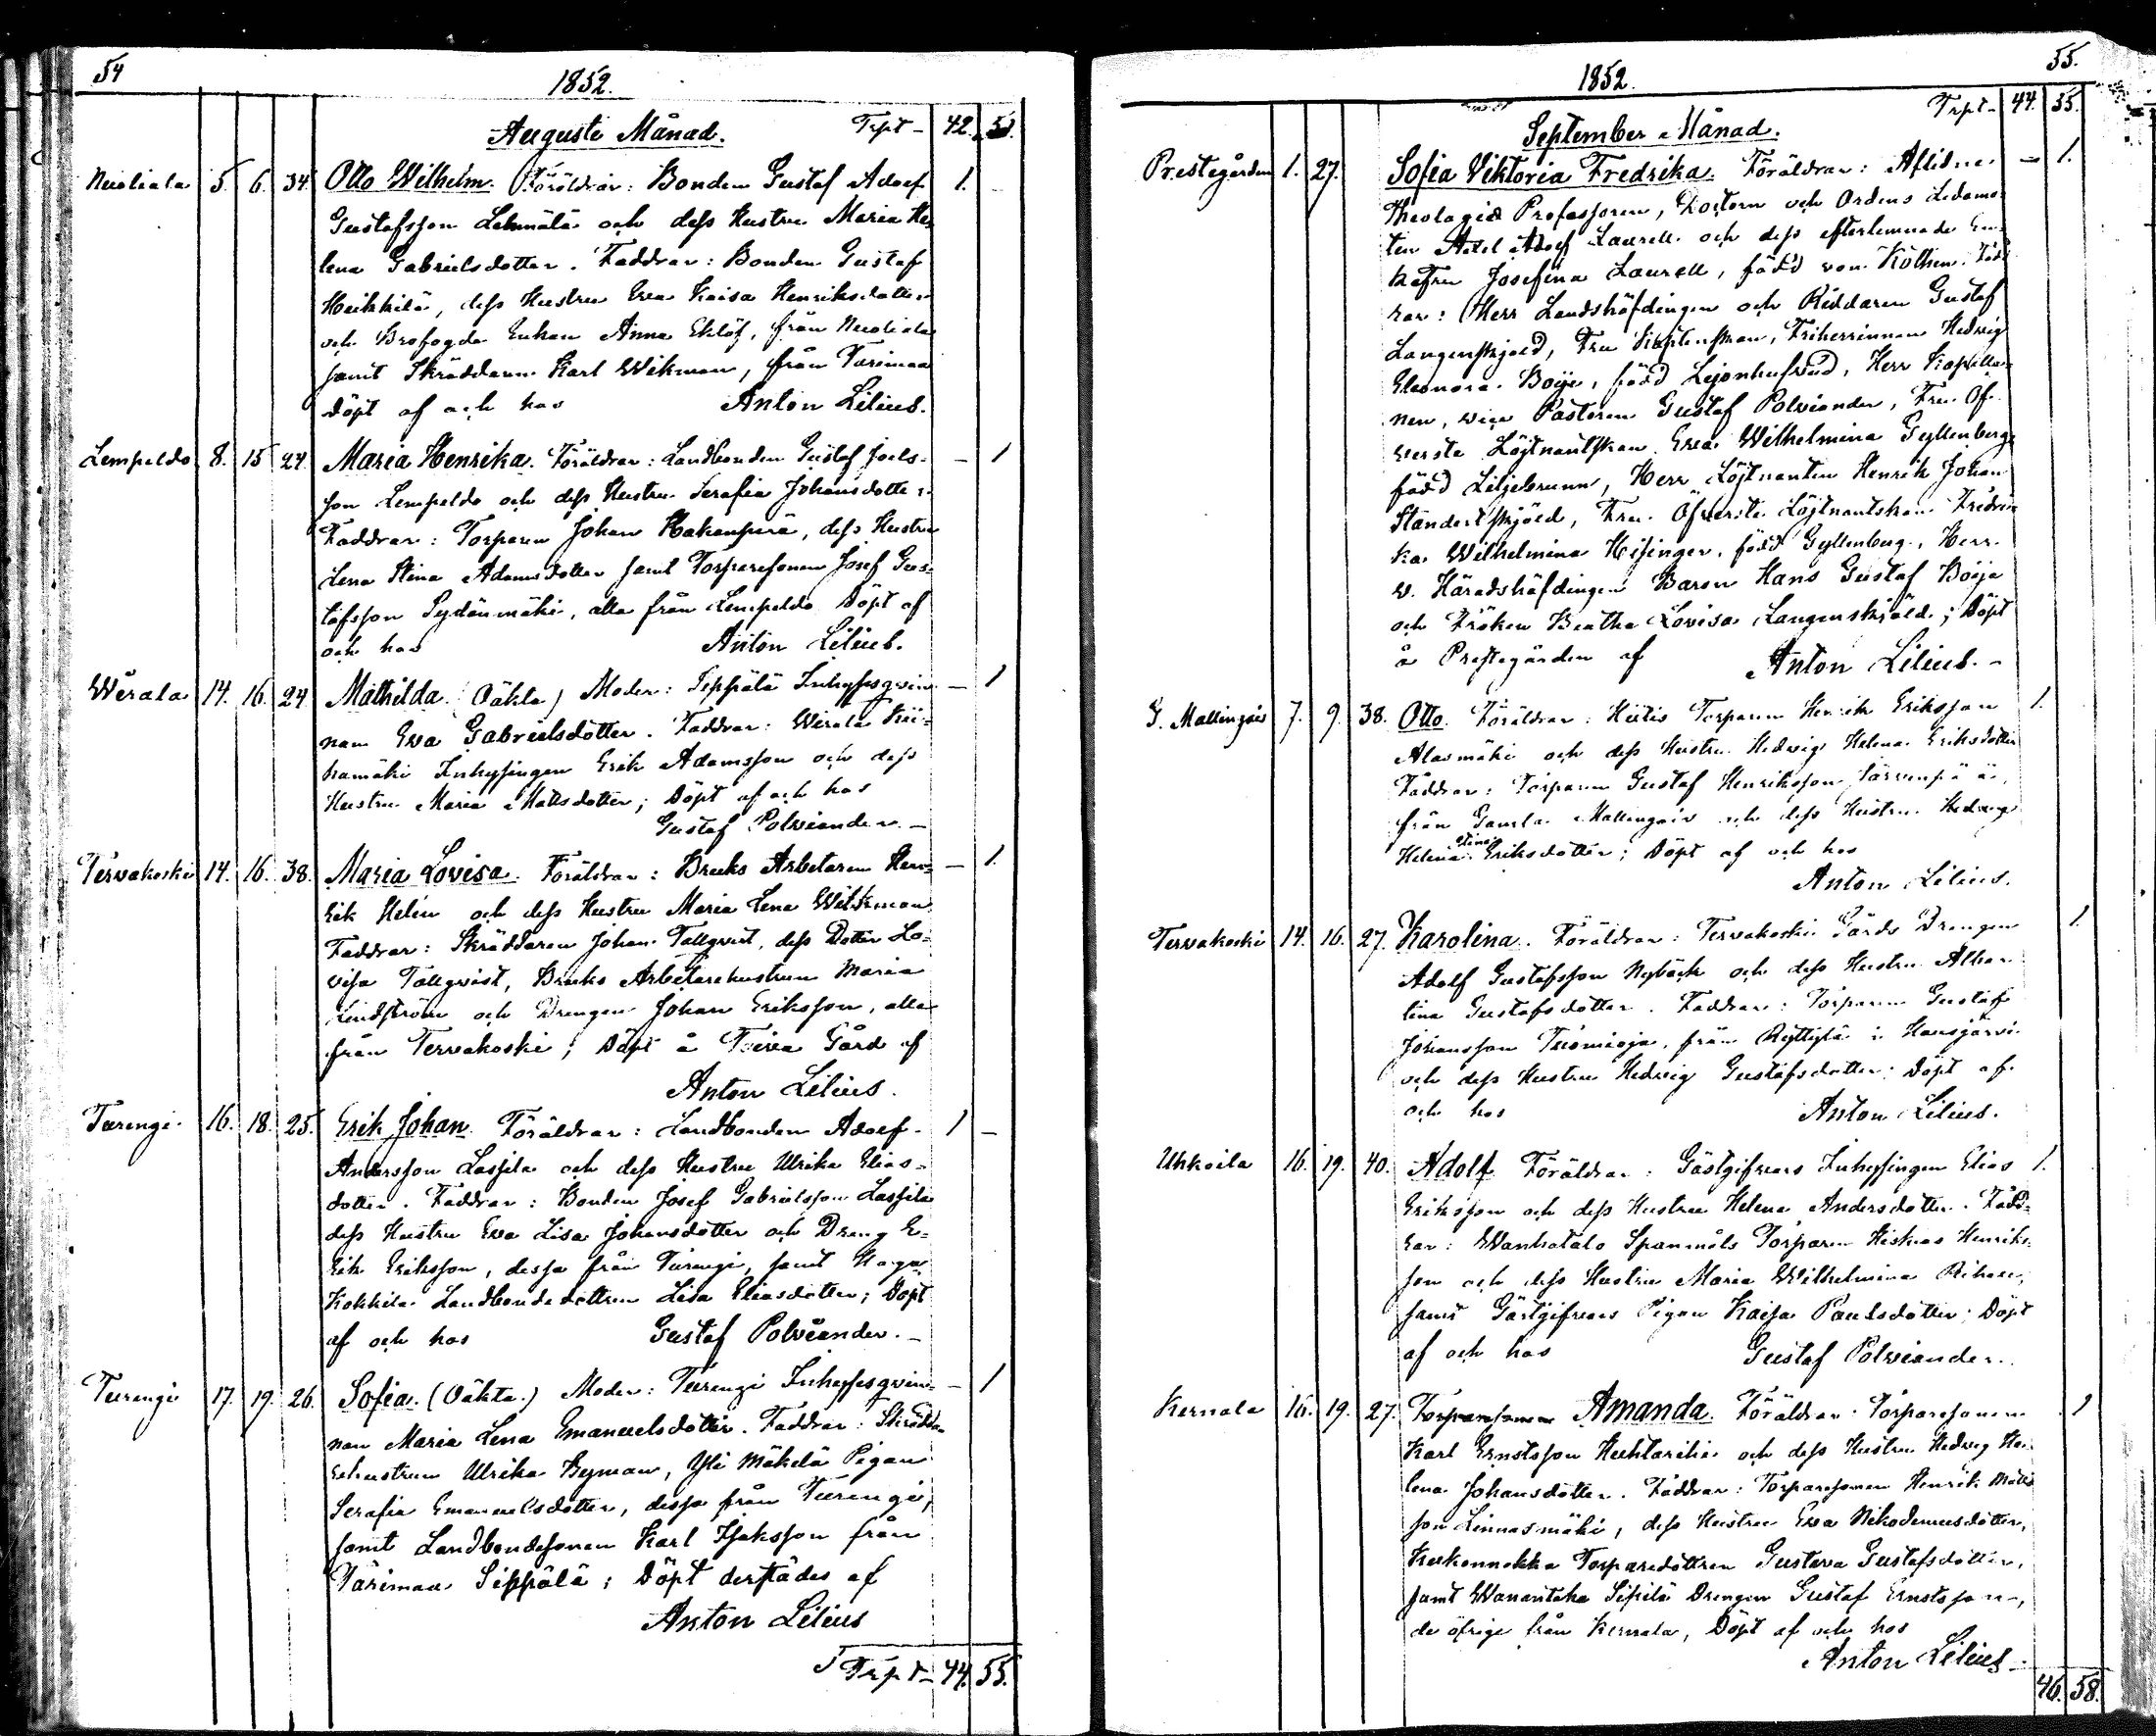 54
1852.
Augusti Månad. Trpt - 42. 51.
Nuoliala 5. 6. 34. Otto Wilhelm. Föräldrar: Bonden Gustaf Adolf 1.
Gustafsson och dess Hustru Maria He=
lena Gabrielsdotter. Faddrar: Bonden Gustaf
Heikkilä, dess Hustru Eva Kaisa Henriksdotter
och Brofogde Enkan Anna Eklöf, från Nuoliala
samt Skräddaren Karl Wikman, från Turimaa
Döpt af och hos Anton Lilius.
Lempeldo 8. 15 24. Maria Henrika. Föräldrar: Landbonden Gustaf Joels= - 1
son Lempeldo och dess Hustru Serafia Johansdotter.
Faddrar: Torparen Johan Hakanperä, dess Hustru
Lena Stina Adamsdotter samt Torparesonen Josef Gus=
tafsson Sydänmäki, alla från Lempeldo Döpt af
och hos Anton Lilius.
Wirala 14. 16. 24. Mathilda (Oäkta) Moder: Seppälä Inhysesqvin= - 1
nan Eva Gabrielsdotter. Faddrar: Wirala
Inhysingen Erik Adamsson och dess
Hustru Maria Mattsdotter; Döpt af och hos
Gustaf Polviander. -
Tervakoski 14. 16. 38. Maria Lovisa. Föräldrar: Bruks Arbetaren Hen= - 1.
rik Helin och dess Hustru Maria Lena Wikman
Faddrar: Skräddaren Johan Tallqvist, dess Dotter Lo=
visa Tallqvist, Bruks Arbetarehustrun Maria
Lindström och Drengen Johan Eriksson, alla
från Tervakoski; Döpt å Toiva Gård af
Anton Lilius.
Turengi. 16. 18. 25. Erik Johan. Föräldrar: Landbonden Adolf 1 -
Andersson Lassila och dess Hustru Ulrika Elias=
dotter. Faddrar: Bonden Josef Gabrielsson Lassila
dess Hustru Eva Lisa Johansdotter och Dreng E=
rik Eriksson, dessa från Turengi, samt Haga
Kokkila Landbondedottren Lisa Eliasdotter; Döpt
af och hos Gustaf Polviander. -
Turengi 17. 19. 26. Sofia. (Oäkta.) Moder: Turengi Inhysesqvin= - 1
nan Maria Lena Emanuelsdotter. Faddrar: Skrädda=
rehustrun Ulrika Byman, Yli Mäkelä Pigan
Serafia Emanuelsdotter, dessa från Turengi,
samt Landbondesonen Karl Isaksson från
Turimaa Seppälä; Döpt derstädes af
Anton Lilius
Trpt - 44. 55.
55.
1852.
September Månad. Trpt - 44. 55.
Prestegården 1. 27. Sofia Viktoria Fredrika. Föräldrar: Aflidne - 1.
Theologiæ Professoren, Doctorn och Ordens Ledamo=
ten Axel Adolf Laurell och dess efterlemnade En=
kefru Josefina Laurell, född von Köthen. Fadd=
rar: Herr Landshöfdingen och Riddaren Gustaf
Langenskjöld, Fru Kaptenskan, Friherrinnan Hedvig
Eleonora Boije, född Lejonhufvud, Herr Kapella=
nen, vice Pastoren Gustaf Polviander, Fru Öf=
versta Löjtnantskan Eva Wilhelmina Gyllenberg
född Liljebrunn, Herr Löjtnanten Henrik Johan
Standertskjöld, Fru Öfversta Löjtnantskan Fredri=
ka Wilhelmina Hisinger, född Gyllenberg, Herr
v. Häradshöfdingen Baron Hans Gustaf Boije
och Fröken Beatha Lovisa Langenskjöld; Döpt
å Prestegården af Anton Lilius. -
G. Mallingais 7. 9. 38. Otto. Föräldrar: Torparen Henrik Eriksson 1.
Alasmäki och dess Hustru Hedvig Helena Eriksdotter
Faddrar: Torparen Gustaf Henriksson Järvenpää,
från Gamla Mallingais och dess Hustru Hedvig
Stina
Helena Eriksdotter; Döpt af och hos
Anton Lilius.
Tervakoski 14. 16. 27. Karolina. Föräldrar: Tervakoski Gårds Drengen 1.
Adolf Gustafsson Nybäck och dess Hustru Alber=
tina Gustafsdotter. Faddrar: Torparen Gustaf
Johansson Tuomioja, från Ryttylä i Hausjärvi
och dess Hustru Hedvig Gustafsdotter; Döpt af
och hos Anton Lilius.
Uhkoila 16. 19. 40. Adolf. Föräldrar: Gästgifvars Inhysingen Elias 1.
Eriksson och dess Hustru Helena Andersdotter. Fadd=
rar: Wanhatalo Spannmåls Torparen Hiskias Henriks=
son och dess Hustru Maria Wilhelmina
samt Gästgifvars Pigan Kaisa Paulsdotter; Döpt
af och hos Gustaf Polviander.
Kernala 16. 19. 27. Torparesonen Amanda. Föräldrar: Torparesonen 1
Karl Ernstsson Huhtariihi och dess Hustru Hedvig He=
lena Johansdotter. Faddrar: Torparesonen Henrik Matts
son Linnasmäki, dess Hustru Eva Nikodemusdotter,
Kurkonnokka Torparedottren Gustava Gustafsdotter,
samt Wanantaka Sipilä Drengen Gustaf Ernstsson,
de öfrige från Kernala, Döpt af och hos
Anton Lilius -
46. 58.